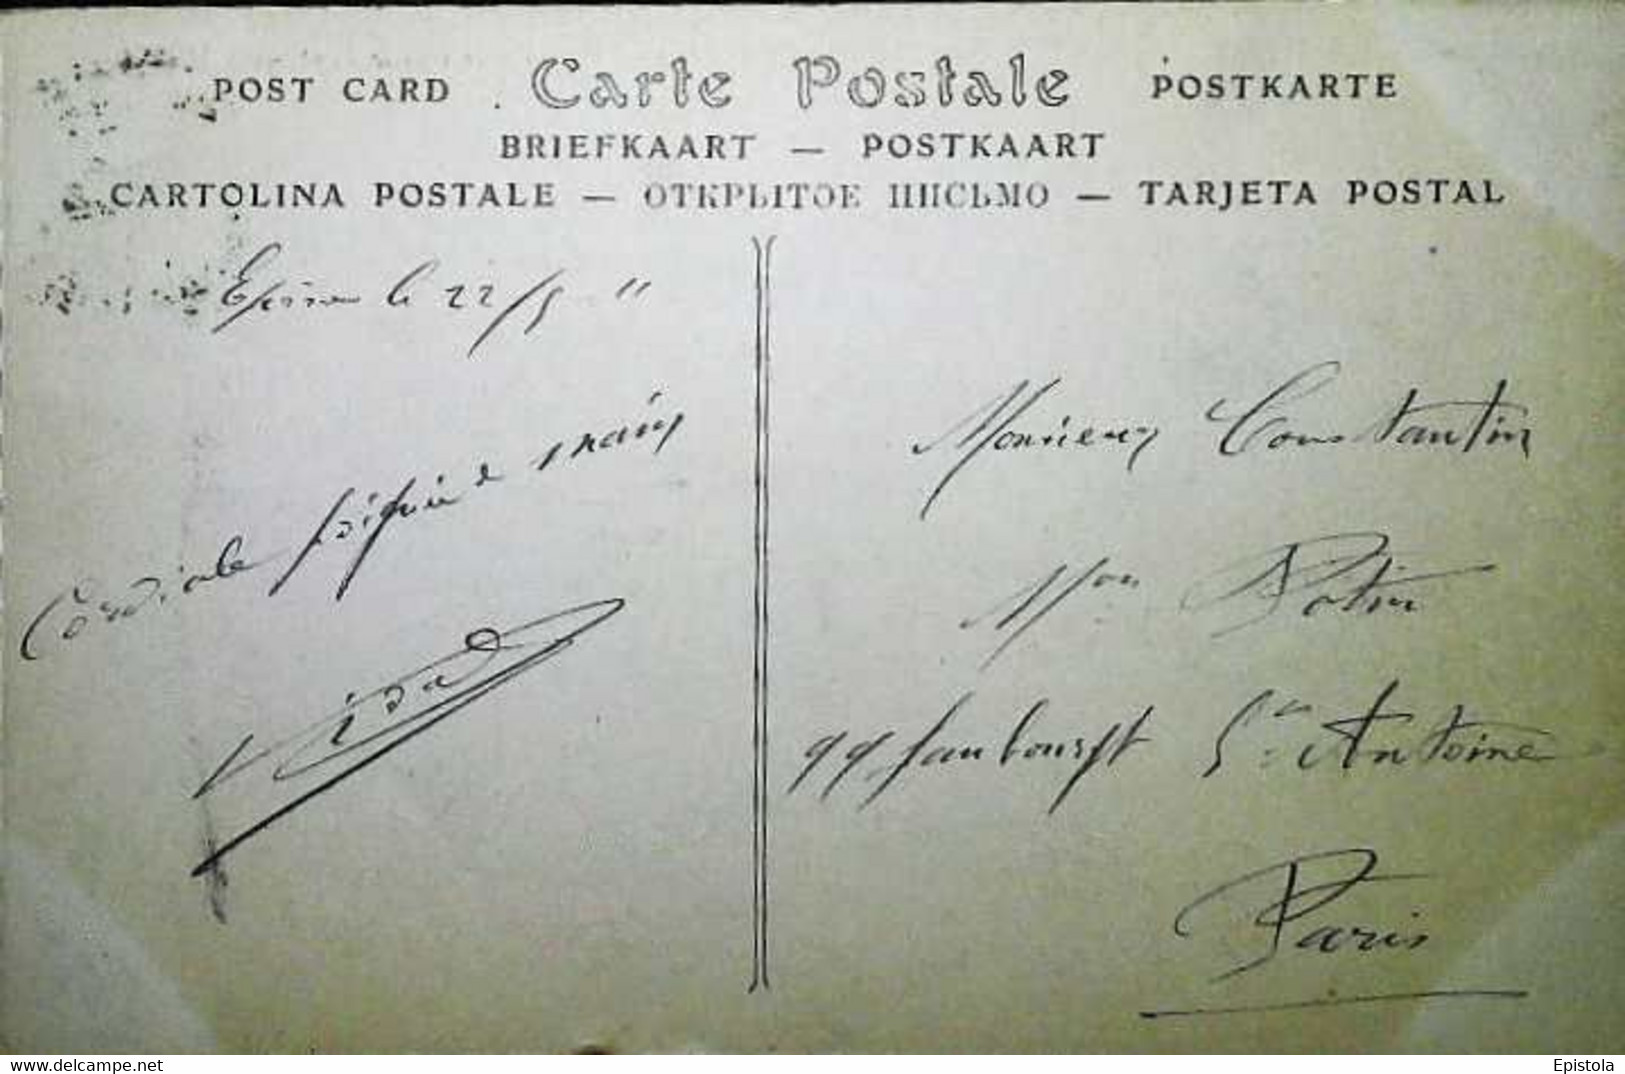 POST CARD Carte Postale POSTKARTE
BRIEFKAART — POSTKAART
CARTOLINA POSTALE — ОТКРЫТОЕ ПИСЬМО — TARJETA POSTAL
le 22/5 11
Cordiale poignée de main
Vidal
Monsieur Constantin
Mon Potin
99 faubourgt St Antoine
Paris
Epistola